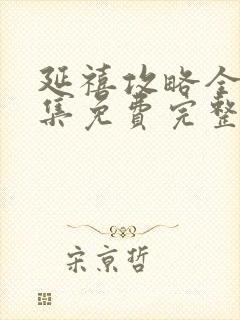 延禧攻略全
集免费完整
宋京哲